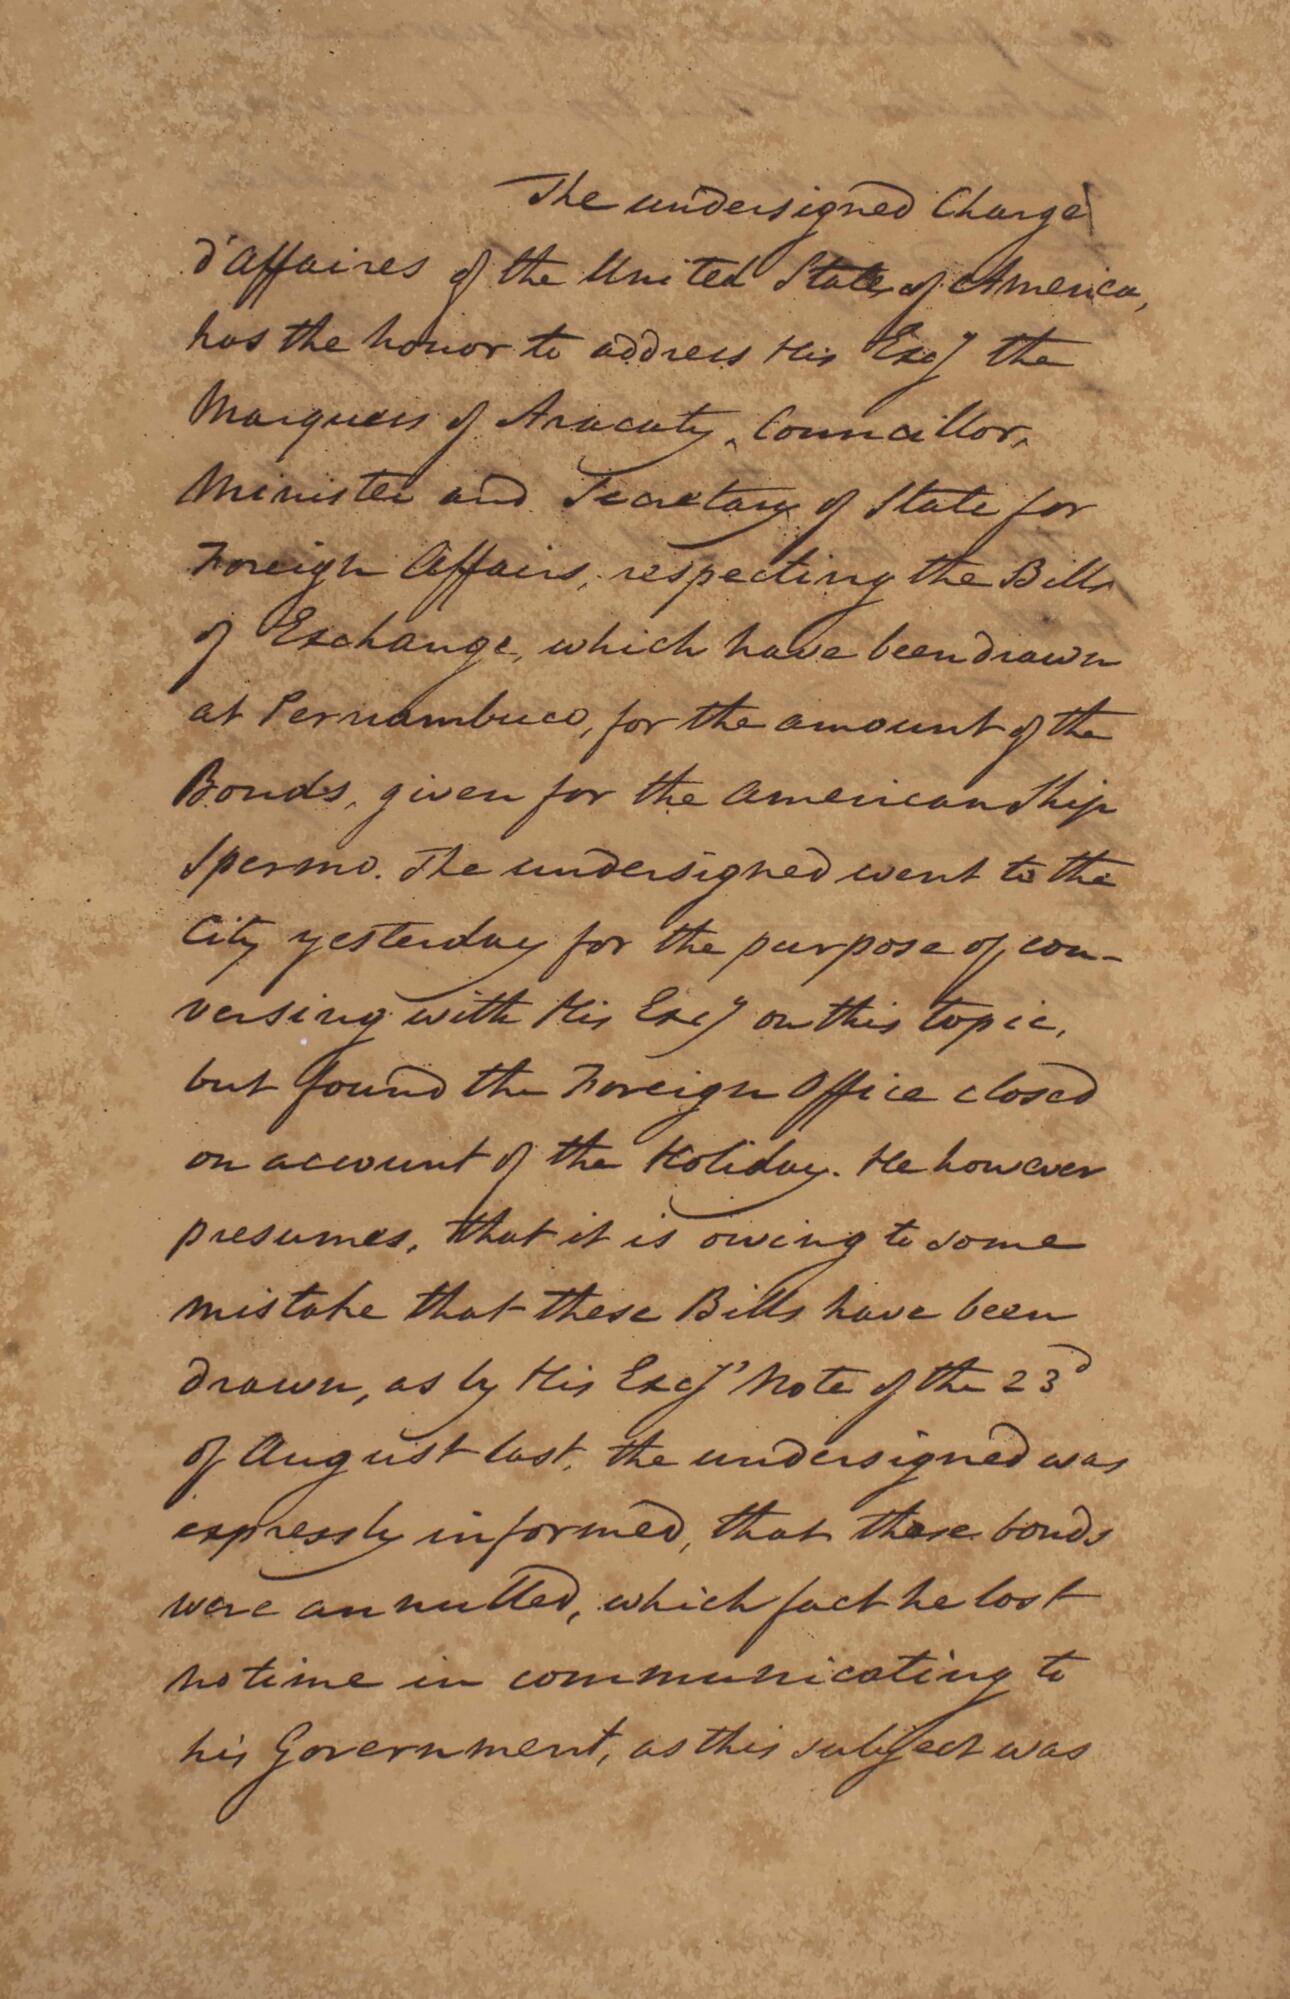 The undersigned Chargé
d'affaires of the United States of America,
has the honor to address His Excy the
Marquess of Aracaty, Councillor,
Minister and Secretary of State for
Foreign Affairs, respecting the Bills
of Exchange, which have been drawn
at Pernambuco, for the amount of the
Bonds, given for the American Ship
Spermo. The undersigned went to the
City yesterday for the purpose of con-
versing with His Excy on this topic,
but found the Foreign Office closed
on account of the Holiday. He however
presumes, that it is owing to some
mistake that these Bills have been
drawn, as by His Excy' Note of the 23d
of August last, the undersigned was
expressly informed, that these bonds
were annulled, which fact he lost
no time in communicating to
his Government, as this subject was